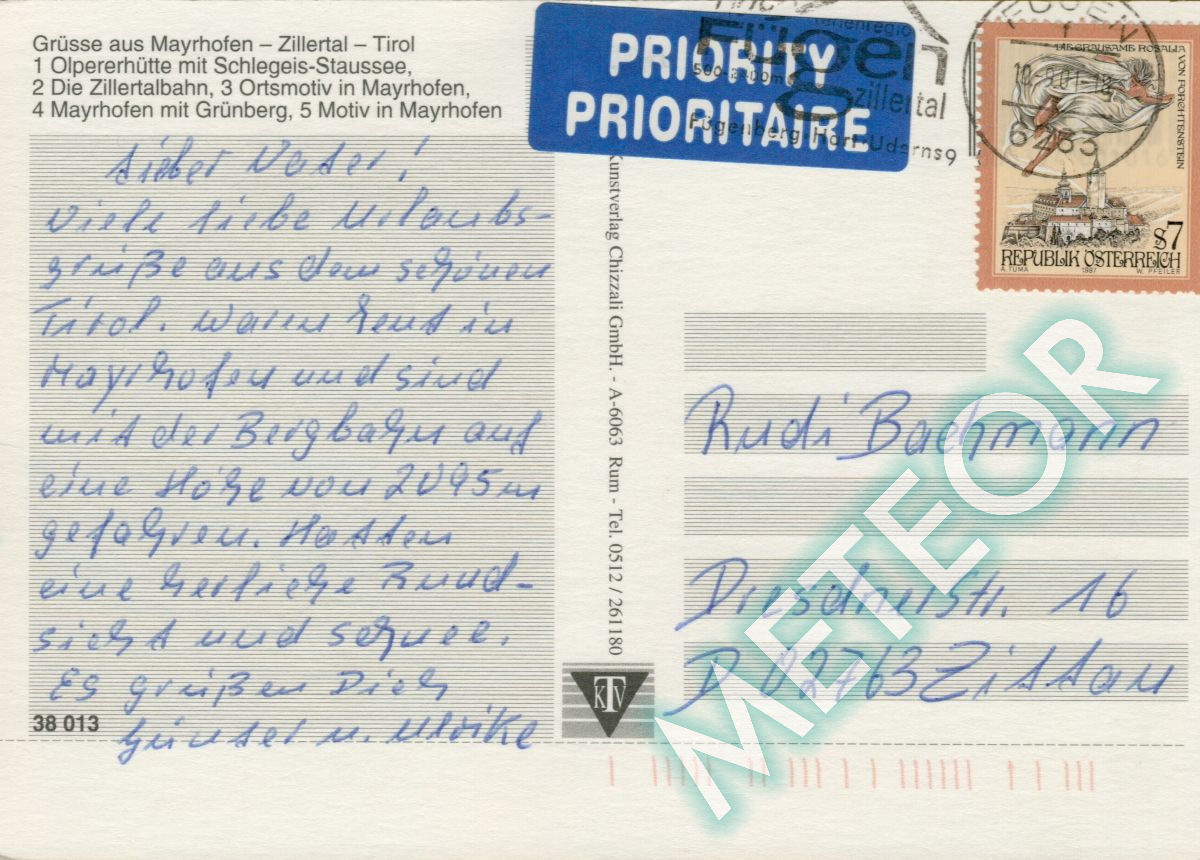 Grüsse aus Mayrhofen – Zillertal – Tirol
1 Olpererhütte mit Schlegeis-Staussee,
2 Die Zillertalbahn, 3 Ortsmotiv in Mayrhofen,
4 Mayrhofen mit Grünberg, 5 Motiv in Mayrhofen
Lieber Vater!
Viele liebe Urlaubs-
grüße aus dem schönen
Tirol. Waren heut in
Mayrhofen und sind
mit der Bergbahn auf
eine Höhe von 2095m
gefahren. Hatten
eine herliche Rund-
sicht und Schnee.
Es grüßen Dich
Günter u. Ulrike
38 013
PRIORITY
PRIORITAIRE
Ferienregion
Fügen
zillertal
Fügenberg Hart Uderns
FÜGEN
6263
DIE GRAUSAME ROSALIA
VON FORCHTENSTEIN
S7
REPUBLIK ÖSTERREICH
A. TUMA 1997 W. PFEILER
Kunstverlag Chizzali GmbH. - A-6063 Rum - Tel. 0512 / 261180
KTV
Rudi Bachmann
Dresdnerstr. 16
D 02763 Zittau
METEOR